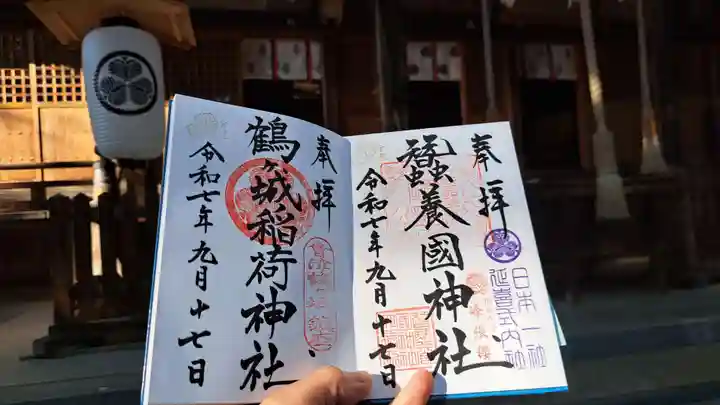 奉拝
蠶養國神社
令和七年九月十七日
日本一社
延喜式内社
峰張櫻
奉拝
鶴ヶ城稲荷神社
令和七年九月十七日